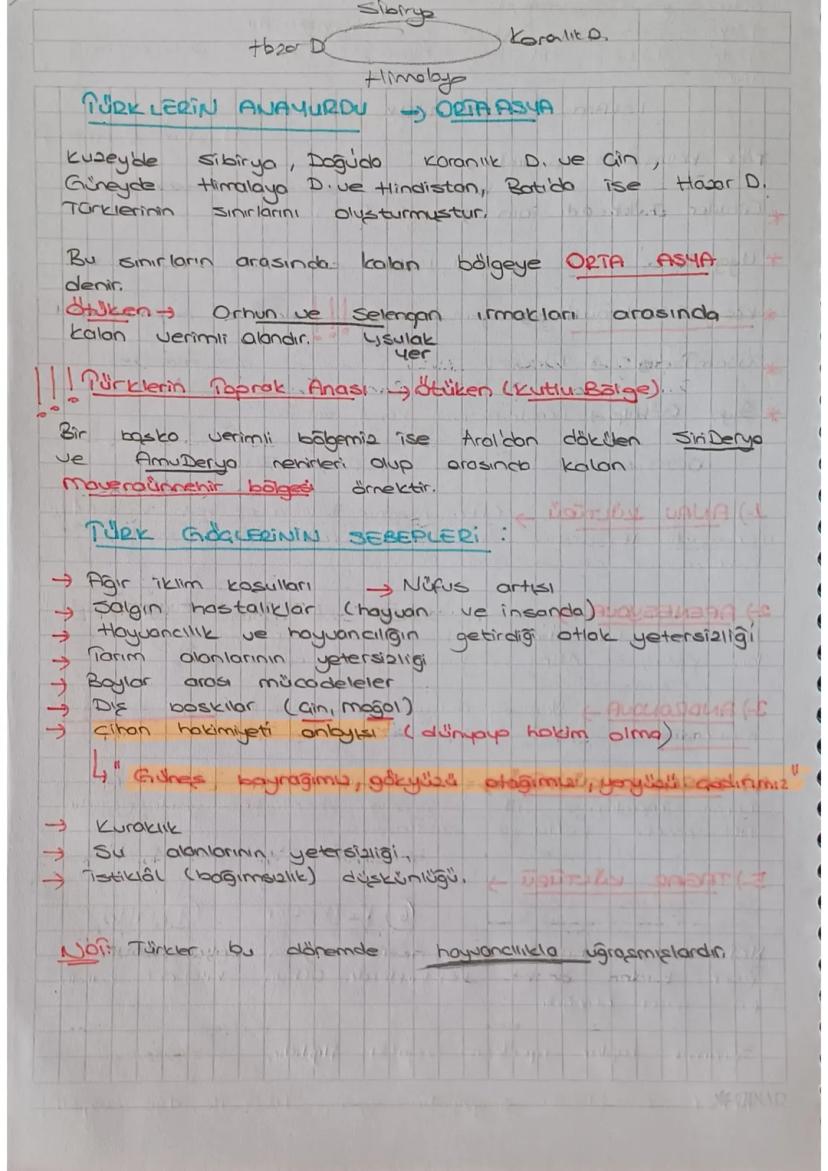 Sibirya
Hazar D
Karanlık D.
Himalaya
TÜRKLERİN ANAYURDU → ORTA ASYA
Kuzeyde Sibirya, Doğuda Karanlık D. ve Çin,
Güneyde Himalaya D. ve Hindistan, Batıda ise Hazar D.
Türklerinin sınırlarını oluşturmuştur.
Bu sınırların arasında kalan bölgeye ORTA ASYA
denir.
Ötüken → Orhun ve Selengan ırmakları arasında
kalan verimli alandır. ↳ sulak
yer
!!! Türklerin Toprak Anası → Ötüken (Kutlu Bölge).
Bir başka verimli bölgemiz ise Aral'dan dökülen SiriDerya
ve AmuDerya nehirleri olup arasında kalan
Maveraünnehir bölgesi örnektir.
TÜRK GÖÇLERİNİN SEBEPLERİ :
→ Ağır iklim koşulları → Nüfus artışı
→ Salgın hastalıklar (hayvan ve insanda)
→ Hayvancılık ve hayvancılığın getirdiği otlak yetersizliği
→ Tarım alanlarının yetersizliği
→ Boylar arası mücadeleler
→ Dış baskılar (Çin, moğol)
→ Cihan hakimiyeti anlayışı (dünyaya hakim olma)
↳ "Güneş bayrağımız, gökyüzü otağımız, yeryüzü çadırımız"
→ Kuraklık
→ Su alanlarının yetersizliği.
→ İstiklâl (bağımsızlık) düşkünlüğü.
NOT: Türkler bu dönemde hayvancılıkla uğraşmışlardır.